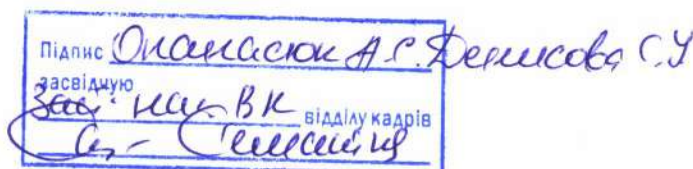 Підпис Опанасюк А.С. Денисова С.У
засвідчую
Заст. нач. ВК відділу кадрів